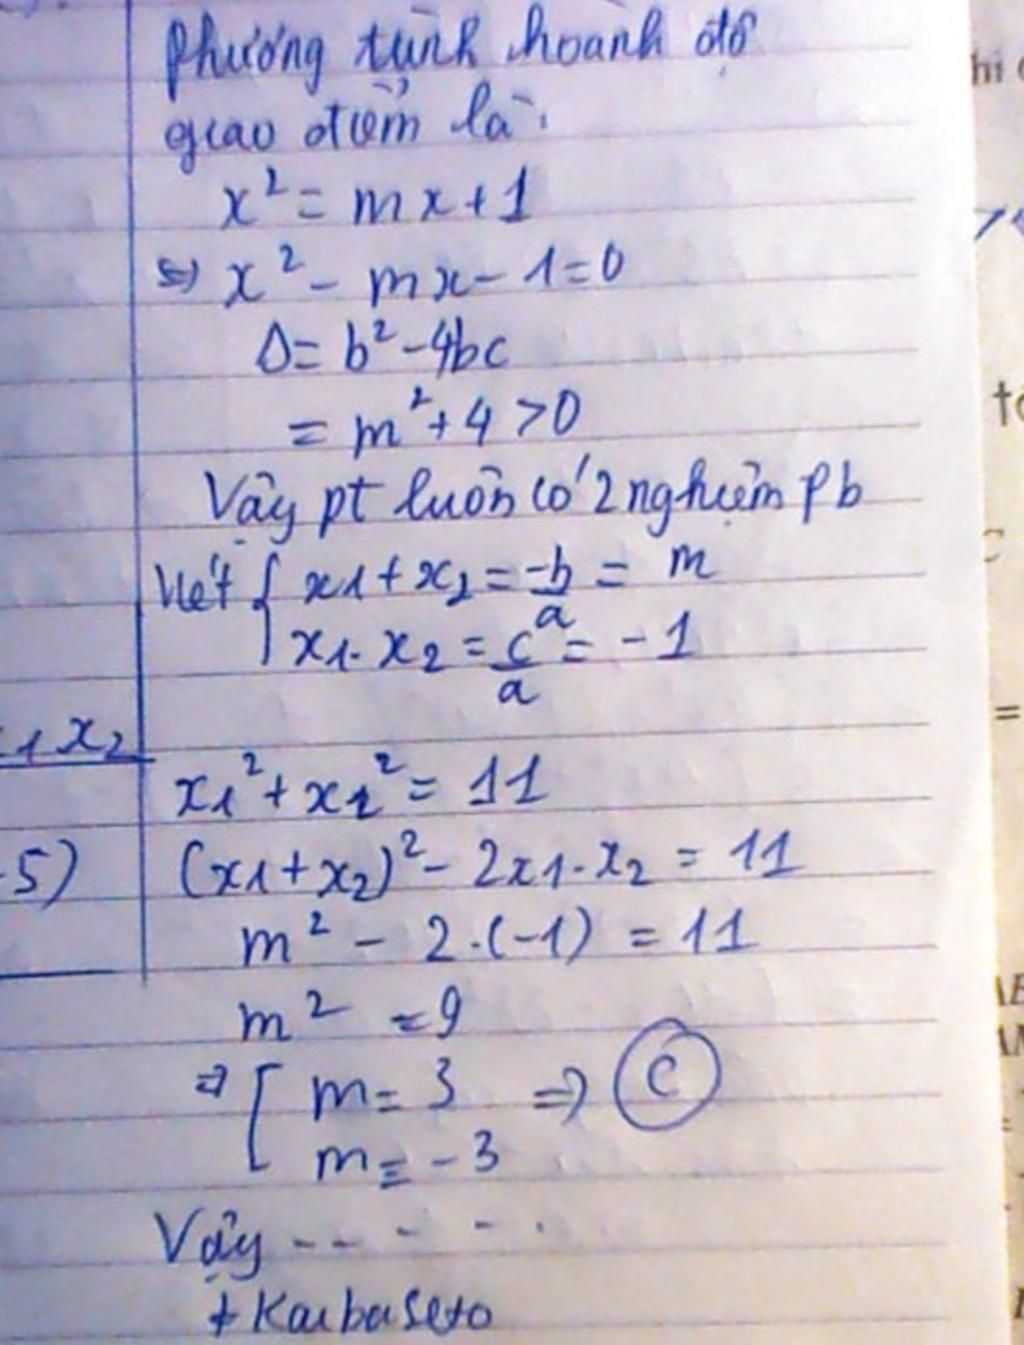 Phương trình hoành độ
giao điểm là:
x² = mx + 1
⇔ x² - mx - 1 = 0
Δ = b² - 4bc
= m² + 4 > 0
Vậy pt luôn có 2 nghiệm pb
Viét { x1 + x2 = -b/a = m
x1 . x2 = c/a = -1
1 x2
x1² + x2² = 11
5) (x1 + x2)² - 2x1 . x2 = 11
m² - 2.(-1) = 11
m² = 9
⇒ [ m = 3 ⇒ C
m = -3
Vậy - - - - .
+ Kaibaseto